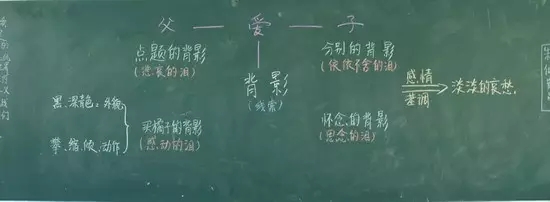 父—爱—子
点题的背影
(悲哀的泪)
分别的背影
(依依不舍的泪)
背影
(线索)
感情
基调
淡淡的哀愁
黑、深青色、外貌
攀、缩、倾、动作
买橘子的背影
(感动的泪)
怀念的背影
(思念的泪)